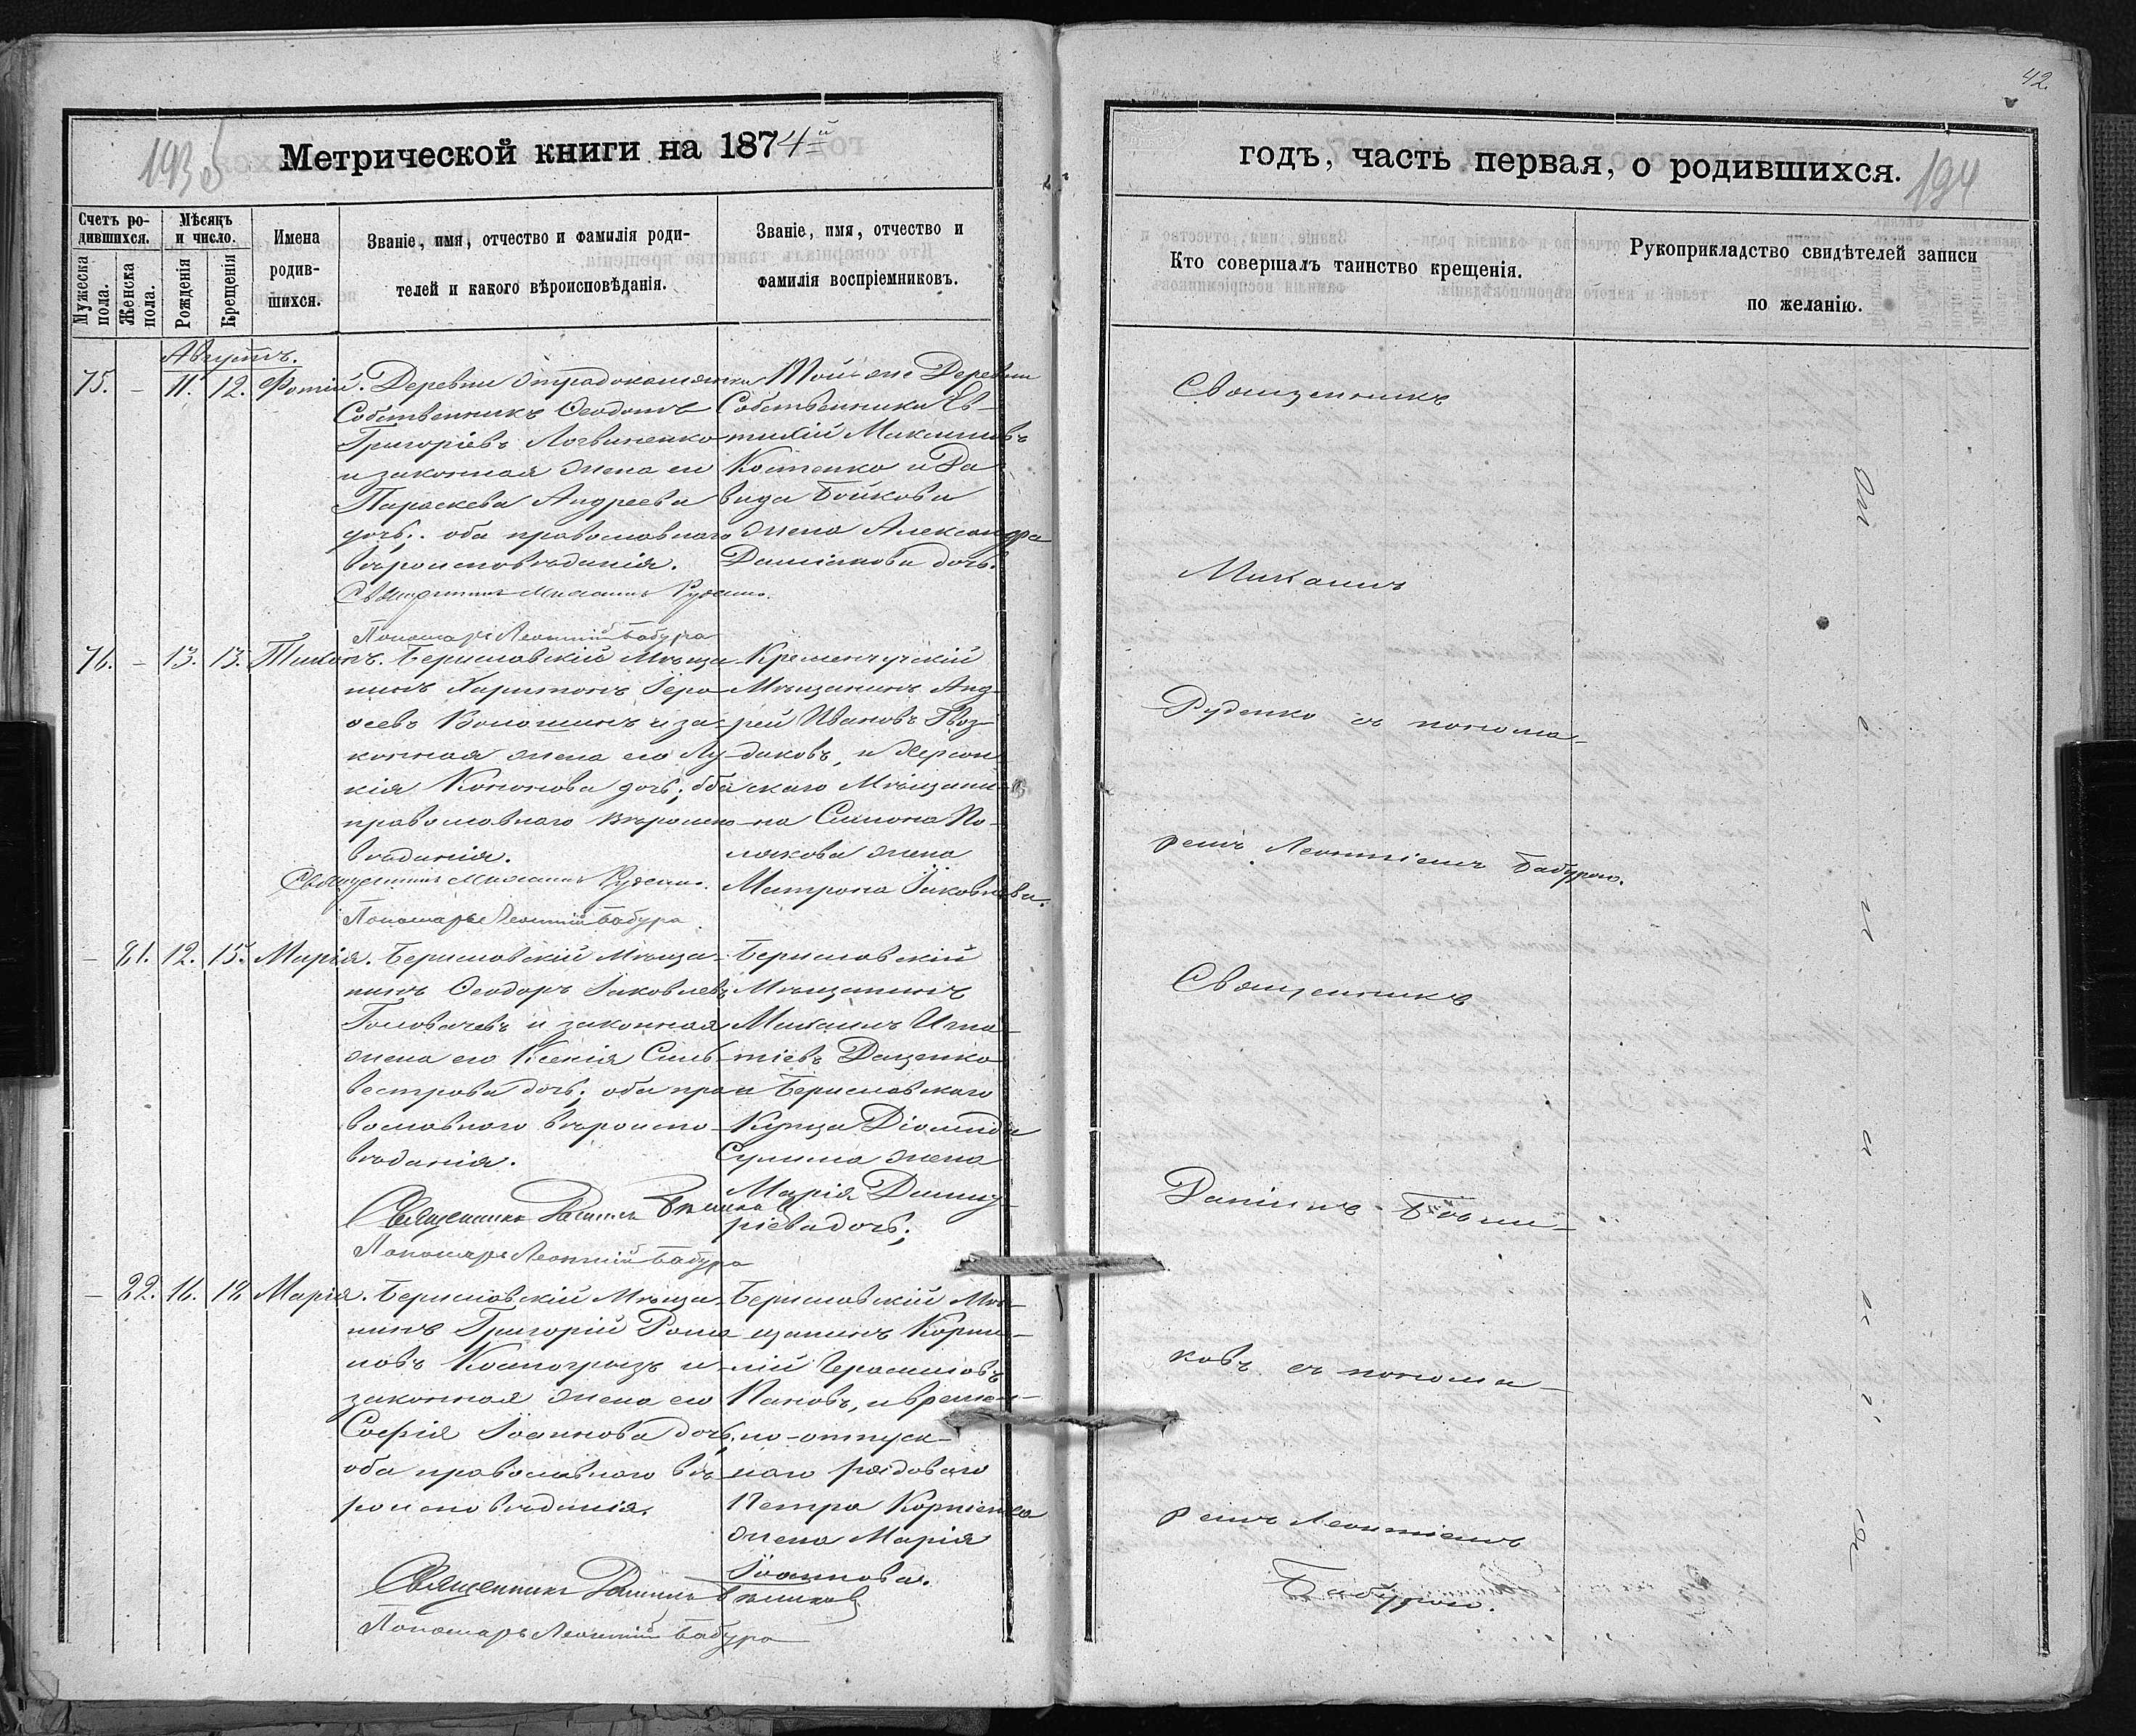 42.
193 об
Метрической книги на 1874й
Счетъ ро-
дившихся.
Мужеска
пола.
Женска
пола.
Мѣсяцъ
и число.
Рожденія
Крещенія
Имена
родив-
шихся.
Званіе, имя, отчество и фамилія роди-
телей и какого вѣроисповѣданія.
Званіе, имя, отчество и
фамилія воспріемниковъ.
Августъ.
75. – 11. 12. Фотій.
Деревни Отрадокаменки
Собственникъ Ѳеодотъ
Григоріевъ Логвиненко
и законная жена его
Параскева Андреева
дочь; оба православнаго
вѣроисповѣданія.
Священникъ Михаилъ Руденко.
Пономарь Леонтій Бабура
Той-же Деревни
Собственники Ев-
тихій Максимовъ
Костенко и Да
вида Бойкова
жена Александра
Даміанова дочь.
76. – 13. 13. Тихонъ.
Бериславскій Мѣща-
нинъ Харитонъ Іеро
ѳеевъ Волошинъ и за-
конная жена его Лу-
кія Кононова дочь; оба
православнаго вѣроиспо-
вѣданія.
Священникъ Михаилъ Руденко.
Пономарь Леонтій Бабура
Кременчугскій
Мѣщанинъ Анд-
рей Ивановъ Гвоз-
диковъ, и Херсон
скаго Мѣщани-
на Симона По-
лякова жена
Матрона Іаковлева.
– 81. 12. 15. Марія.
Бериславскій Мѣща-
нинъ Ѳеодоръ Іаковлевъ
Головачевъ и законная
жена его Ксенія Силь-
вестрова дочь; оба пра
вославнаго вѣроиспо-
вѣданія.
Священникъ Даніилъ
Пономарь Леонтій Бабура
Бериславскій
Мѣщанинъ
Михаилъ Игна-
тіевъ Даценко
и Бериславскаго
Купца Діомида
Сулима жена
Марія Димит-
ріева дочь;
– 82. 16. 18 Марія.
Бериславскій Мѣща-
нинъ Григорій Рома
новъ Косногрызъ и
законная жена его
Софія Іоаннова дочь,
оба православнаго вѣ
роисповѣданія.
Священникъ Даніилъ
Пономарь Леонтій Бабура
Бериславскій Мѣ-
щанинъ Корни-
лій Герасимовъ
Пановъ, и времен-
но-отпуск-
наго рядоваго
Петра Корніенка
жена Марія
Іоаннова.
годъ, часть первая, о родившихся.
194
Кто совершалъ таинство крещенія.
Рукоприкладство свидѣтелей записи
по желанію.
Священникъ
Михаилъ
Руденко съ понома-
ремъ Леонтіемъ Бабурою.
Священникъ
Даніилъ
ковъ съ понома-
ремъ Леонтіемъ
Бабурою.